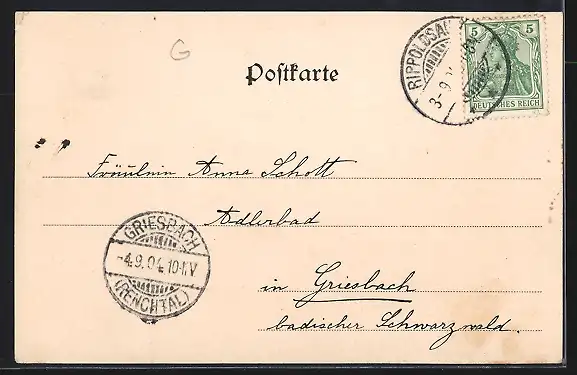 G
Postkarte
RIPPOLDSAU
3-9
5 5
DEUTSCHES REICH
Fräulein Anna Schott
Adlerbad
GRIESBACH
-4.9.04. 10-11V
(RENCHTAL)
in Griesbach
badischer Schwarzwald.